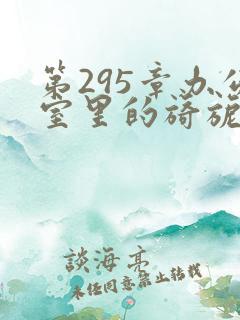 第295章办公
室里的旖旎
談海亭
未经同意禁止转载